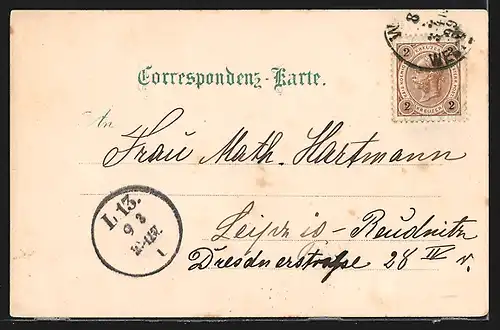 Correspondenz-Karte.
2 2
2 2
An
Frau Math. Hartmann
Leipzig-Reudnitz
Dresdnerstrasse 28 IV r.
L 13.
9 3
1
8